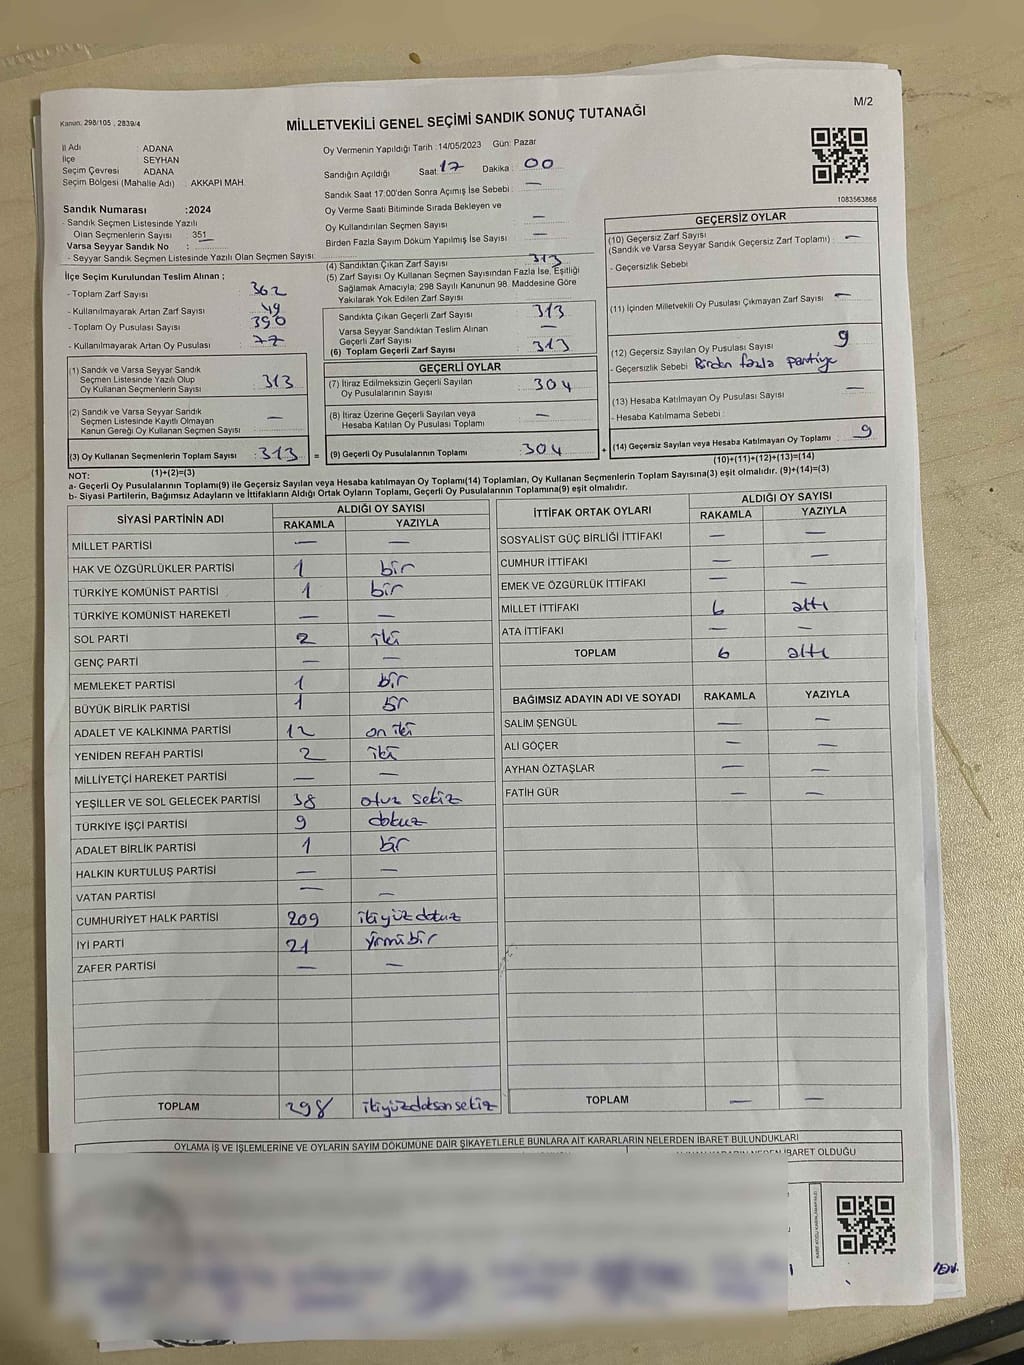 M/2
Kanun: 298/105 , 2839/4
MİLLETVEKİLİ GENEL SEÇİMİ SANDIK SONUÇ TUTANAĞI
İl Adı : ADANA
İlçe : SEYHAN
Seçim Çevresi : ADANA
Seçim Bölgesi (Mahalle Adı) : AKKAPI MAH.
Oy Vermenin Yapıldığı Tarih :14/05/2023 Gün: Pazar
Sandığın Açıldığı Saat : 17 Dakika : 00
Sandık Saat 17:00'den Sonra Açımış İse Sebebi : —
Oy Verme Saati Bitiminde Sırada Bekleyen ve
Oy Kullandırılan Seçmen Sayısı —
Birden Fazla Sayım Döküm Yapılmış İse Sayısı —
1083563868
Sandık Numarası :2024
- Sandık Seçmen Listesinde Yazılı
Olan Seçmenlerin Sayısı : 351
Varsa Seyyar Sandık No :
- Seyyar Sandık Seçmen Listesinde Yazılı Olan Seçmen Sayısı:
İlçe Seçim Kurulundan Teslim Alınan :
- Toplam Zarf Sayısı : 362
- Kullanılmayarak Artan Zarf Sayısı : 49
- Toplam Oy Pusulası Sayısı : 390
- Kullanılmayarak Artan Oy Pusulası : 77
(1) Sandık ve Varsa Seyyar Sandık
Seçmen Listesinde Yazılı Olup
Oy Kullanan Seçmenlerin Sayısı : 313
(2) Sandık ve Varsa Seyyar Sandık
Seçmen Listesinde Kayıtlı Olmayan
Kanun Gereği Oy Kullanan Seçmen Sayısı : —
(3) Oy Kullanan Seçmenlerin Toplam Sayısı : 313 =
(1)+(2)=(3)
(4) Sandıktan Çıkan Zarf Sayısı : 313
(5) Zarf Sayısı Oy Kullanan Seçmen Sayısından Fazla İse, Eşitliği
Sağlamak Amacıyla; 298 Sayılı Kanunun 98. Maddesine Göre
Yakılarak Yok Edilen Zarf Sayısı :
Sandıkta Çıkan Geçerli Zarf Sayısı : 313
Varsa Seyyar Sandıktan Teslim Alınan
Geçerli Zarf Sayısı : —
(6) Toplam Geçerli Zarf Sayısı : 313
GEÇERLİ OYLAR
(7) İtiraz Edilmeksizin Geçerli Sayılan
Oy Pusulalarının Sayısı : 304
(8) İtiraz Üzerine Geçerli Sayılan veya
Hesaba Katılan Oy Pusulası Toplamı : —
(9) Geçerli Oy Pusulalarının Toplamı : 304 +
GEÇERSİZ OYLAR
(10) Geçersiz Zarf Sayısı
(Sandık ve Varsa Seyyar Sandık Geçersiz Zarf Toplamı) : —
- Geçersizlik Sebebi :
(11) İçinden Milletvekili Oy Pusulası Çıkmayan Zarf Sayısı : —
(12) Geçersiz Sayılan Oy Pusulası Sayısı : 9
- Geçersizlik Sebebi : Birden fazla partiye
(13) Hesaba Katılmayan Oy Pusulası Sayısı : —
- Hesaba Katılmama Sebebi :
(14) Geçersiz Sayılan veya Hesaba Katılmayan Oy Toplamı : 9
(10)+(11)+(12)+(13)=(14)
NOT:
a- Geçerli Oy Pusulalarının Toplamı(9) ile Geçersiz Sayılan veya Hesaba katılmayan Oy Toplamı(14) Toplamları, Oy Kullanan Seçmenlerin Toplam Sayısına(3) eşit olmalıdır. (9)+(14)=(3)
b- Siyasi Partilerin, Bağımsız Adayların ve İttifakların Aldığı Ortak Oyların Toplamı, Geçerli Oy Pusulalarının Toplamına(9) eşit olmalıdır.
SİYASİ PARTİNİN ADI ALDIĞI OY SAYISI
RAKAMLA YAZIYLA
MİLLET PARTİSİ — —
HAK VE ÖZGÜRLÜKLER PARTİSİ 1 bir
TÜRKİYE KOMÜNİST PARTİSİ 1 bir
TÜRKİYE KOMÜNİST HAREKETİ — —
SOL PARTİ 2 iki
GENÇ PARTİ — —
MEMLEKET PARTİSİ 1 bir
BÜYÜK BİRLİK PARTİSİ 1 bir
ADALET VE KALKINMA PARTİSİ 12 on iki
YENİDEN REFAH PARTİSİ 2 iki
MİLLİYETÇİ HAREKET PARTİSİ — —
YEŞİLLER VE SOL GELECEK PARTİSİ 38 otuz sekiz
TÜRKİYE İŞÇİ PARTİSİ 9 dokuz
ADALET BİRLİK PARTİSİ 1 bir
HALKIN KURTULUŞ PARTİSİ — —
VATAN PARTİSİ — —
CUMHURİYET HALK PARTİSİ 209 ikiyüz dokuz
İYİ PARTİ 21 yirmi bir
ZAFER PARTİSİ — —
TOPLAM 298 ikiyüzdoksansekiz
İTTİFAK ORTAK OYLARI ALDIĞI OY SAYISI
RAKAMLA YAZIYLA
SOSYALİST GÜÇ BİRLİĞİ İTTİFAKI — —
CUMHUR İTTİFAKI — —
EMEK VE ÖZGÜRLÜK İTTİFAKI — —
MİLLET İTTİFAKI 6 altı
ATA İTTİFAKI — —
TOPLAM 6 altı
BAĞIMSIZ ADAYIN ADI VE SOYADI RAKAMLA YAZIYLA
SALİM ŞENGÜL — —
ALİ GÖÇER — —
AYHAN ÖZTAŞLAR — —
FATİH GÜR — —
TOPLAM — —
OYLAMA İŞ VE İŞLEMLERİNE VE OYLARIN SAYIM DÖKÜMÜNE DAİR ŞİKAYETLERLE BUNLARA AİT KARARLARIN NELERDEN İBARET BULUNDUKLARI
İBARET OLDUĞU